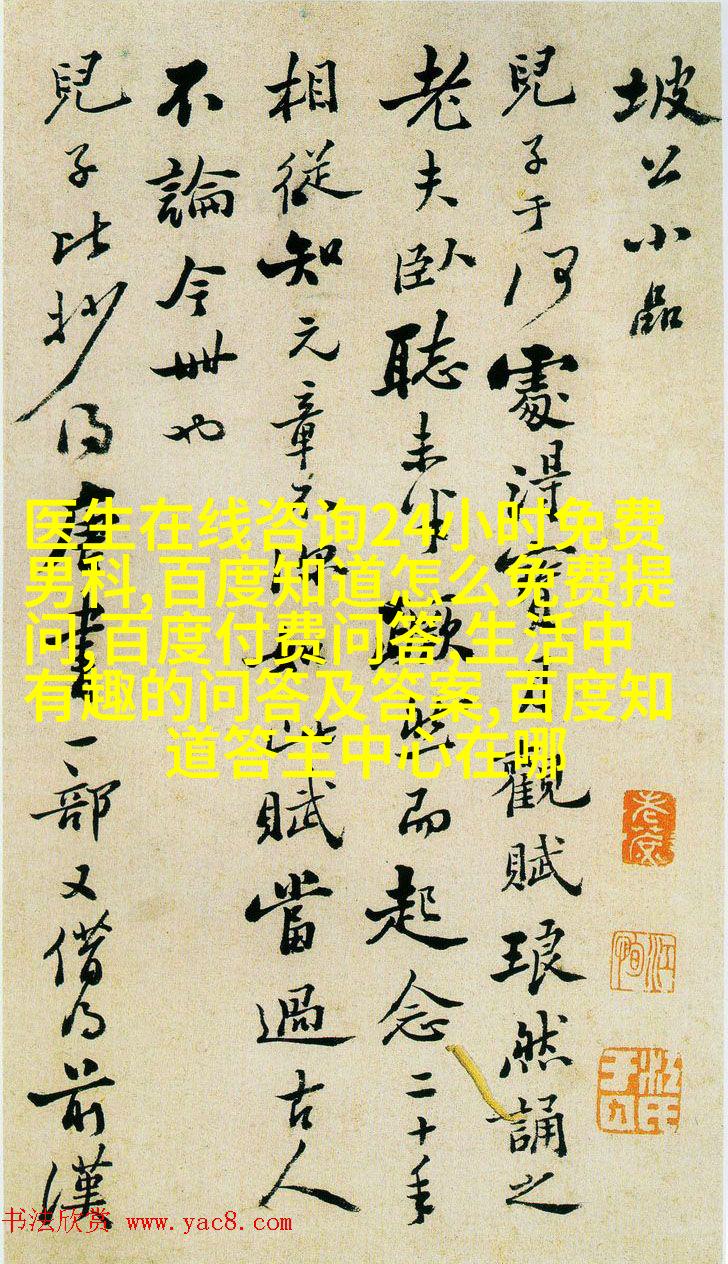 坡公小品
兒子于何處得寶月觀賦琅然誦之
老夫臥聽未半蹶然而起念二十年
相從知元章不此賦當過古人
不論今世也
兒子比抄得唐書一部又借得前漢
医生在线咨询24小时免费
男科,百度知道怎么免费提
问,百度付费问答,生活中
有趣的问答及答案,百度知
道答主中心在哪
书法欣赏 www.yac8.com